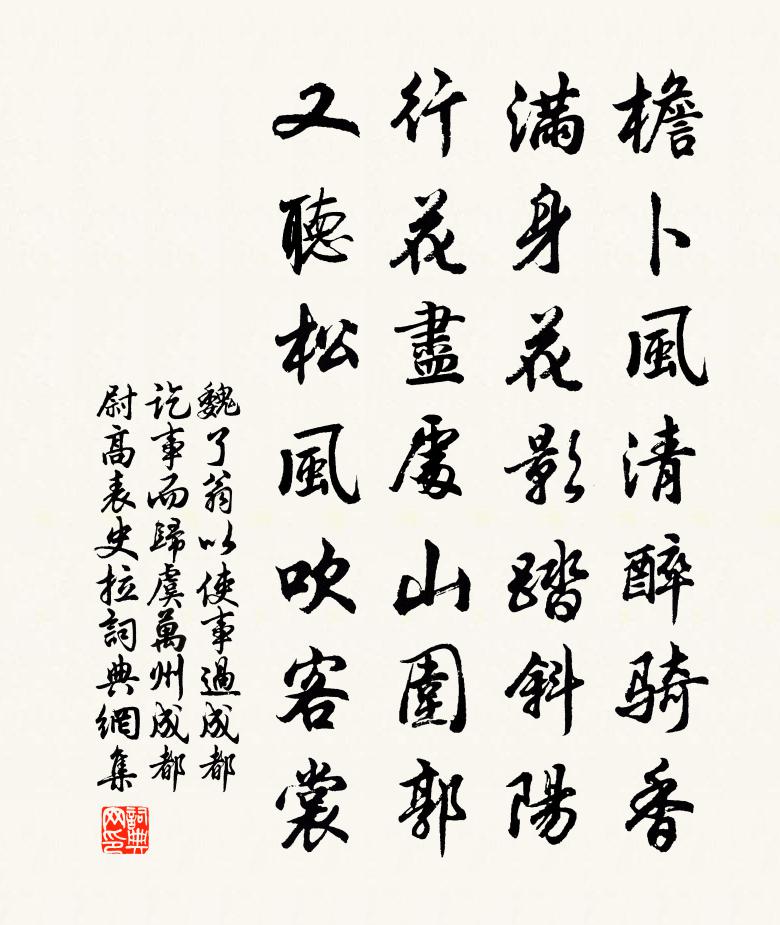 檐卜風清醉騎香
滿身花影踏斜陽
行花盡處山圍郭
又聽松風吹客裳
魏了翁以使事過成都
訖事而歸虞萬州成都
尉高表史拉詞典網集
詞典網印